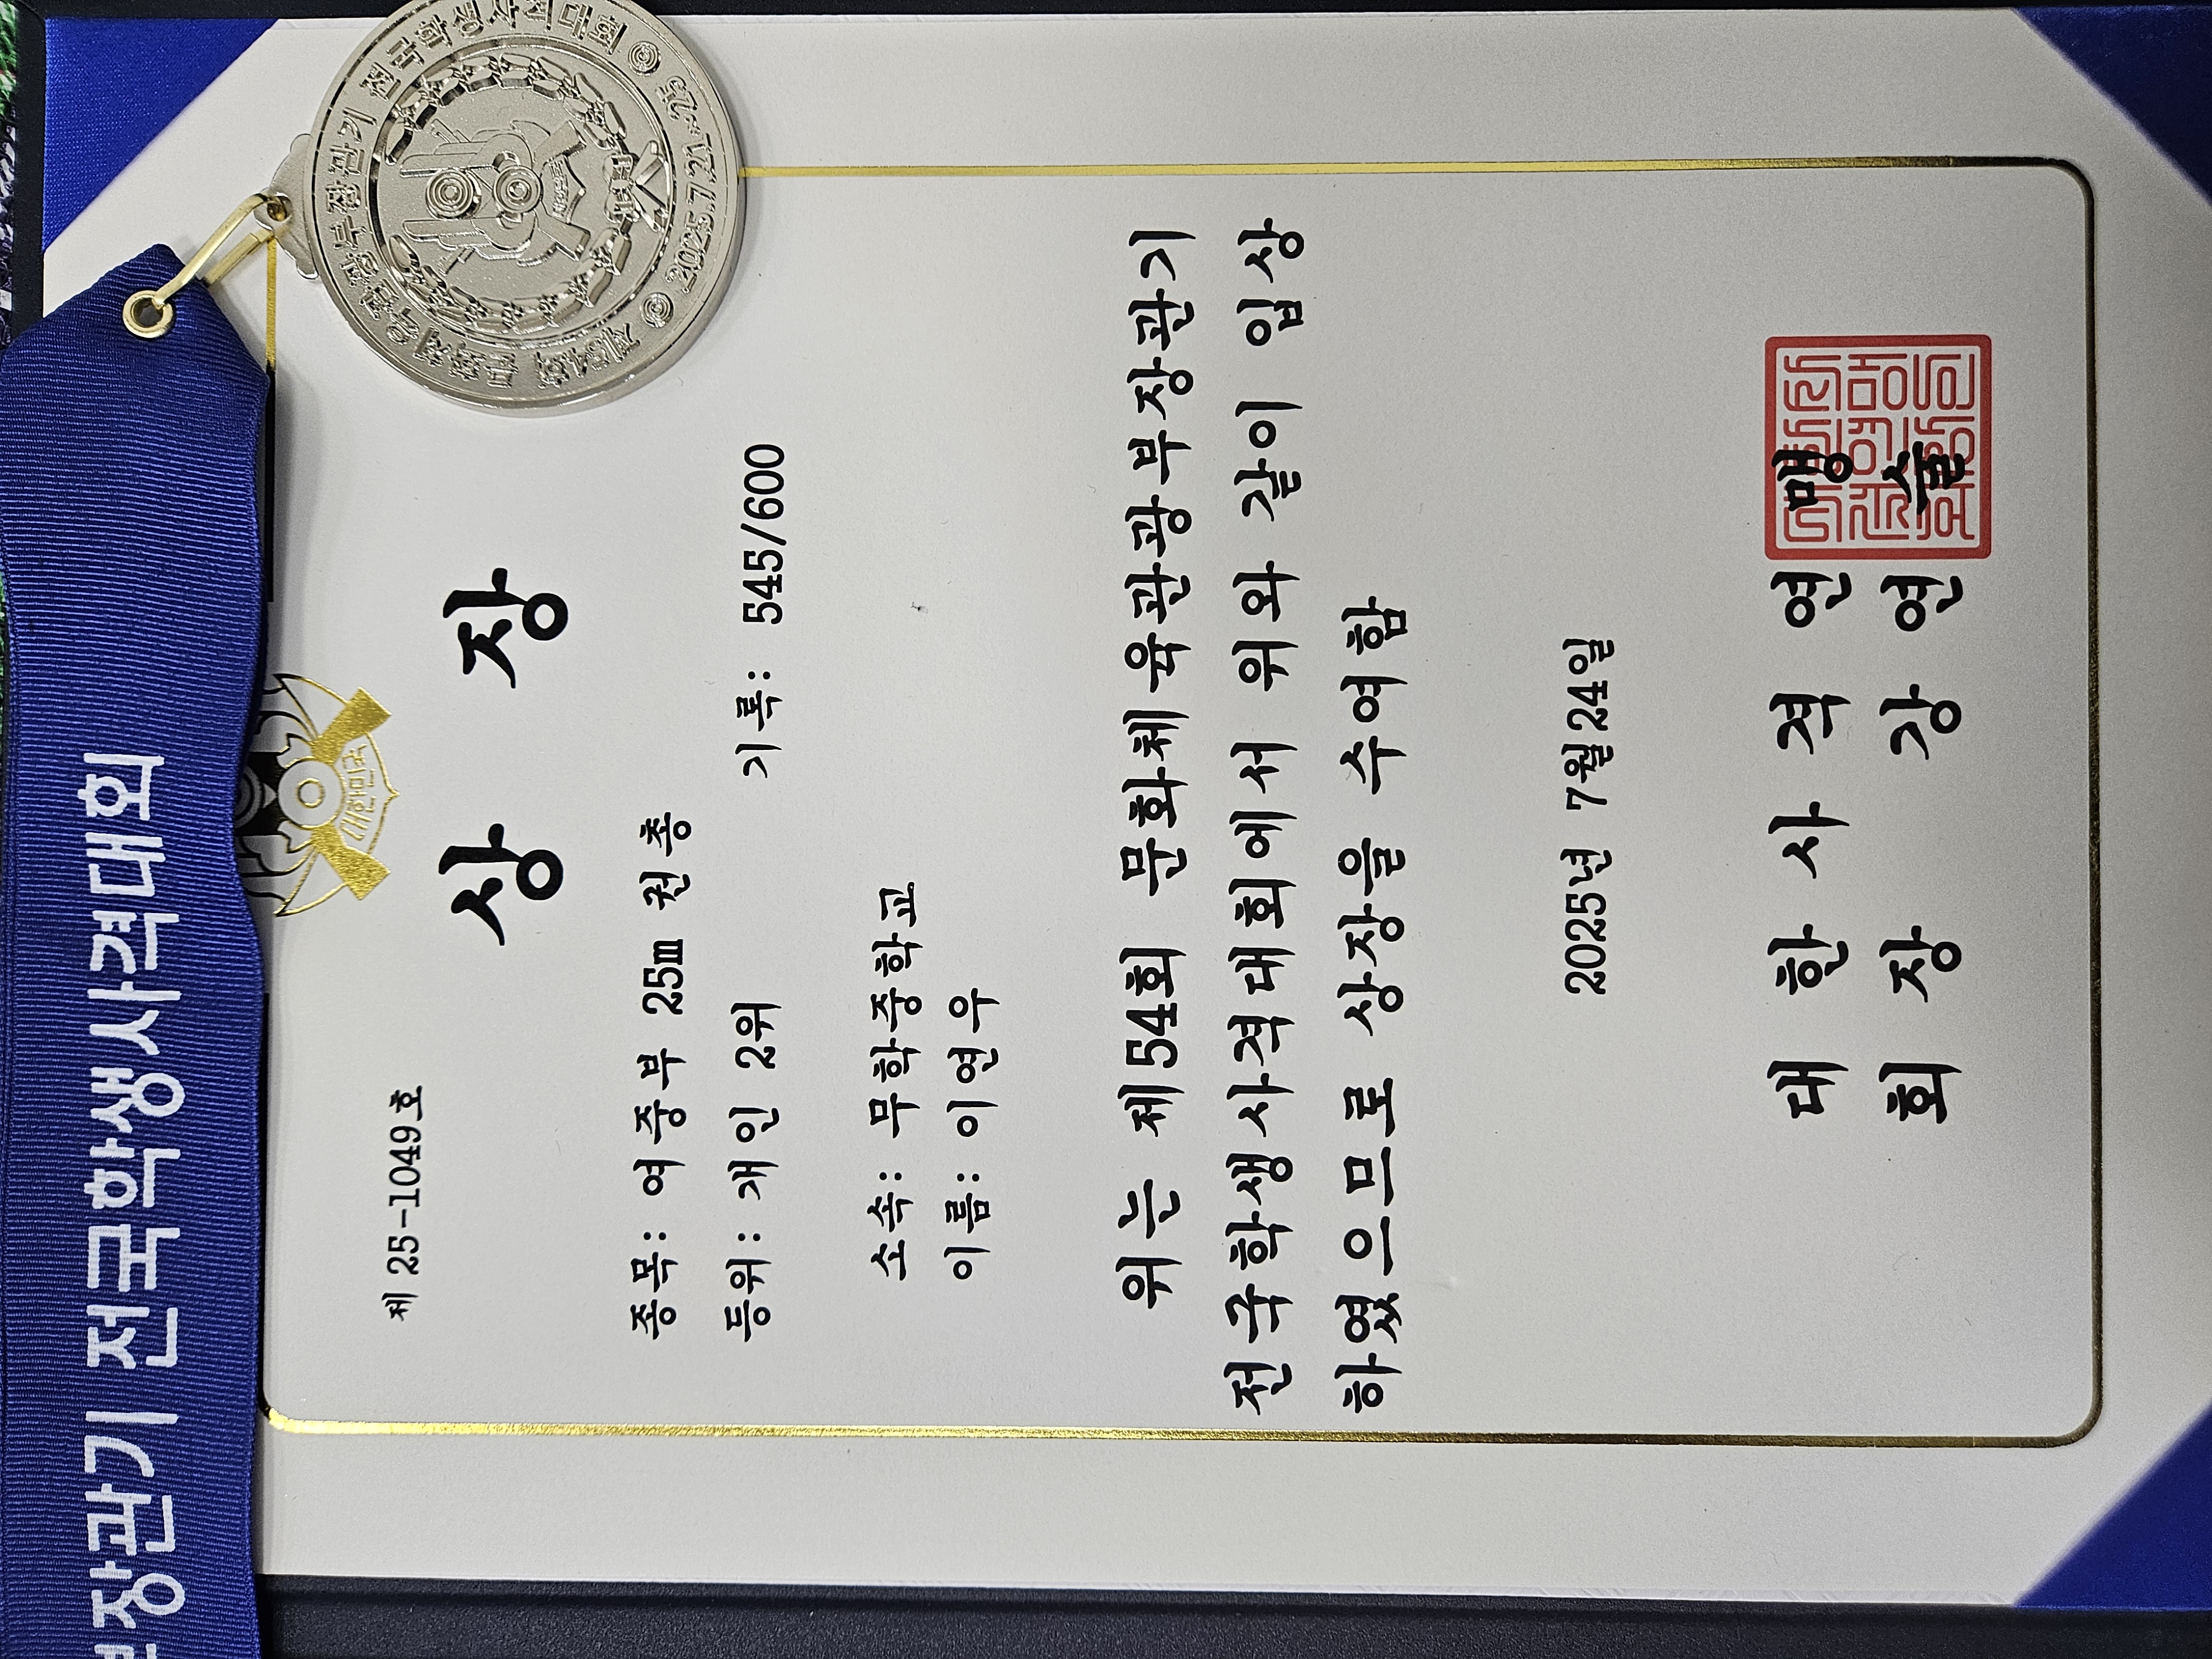 장관기 전국학생사격대회
제54회 문화체육관광부장관기 전국학생사격대회
2025.7.21~25
대한민국
제 25-1049호
상 장
종목: 여중부 25m 권총
등위: 개인 2위 기록: 545/600
소속: 무학중학교
이름: 이연우
위는 제54회 문화체육관광부장관기
전국학생사격대회에서 위와 같이 입상
하였으므로 상장을 수여함
2025년 7월24일
대 한 사 격 연 맹
회 장 강 연 술